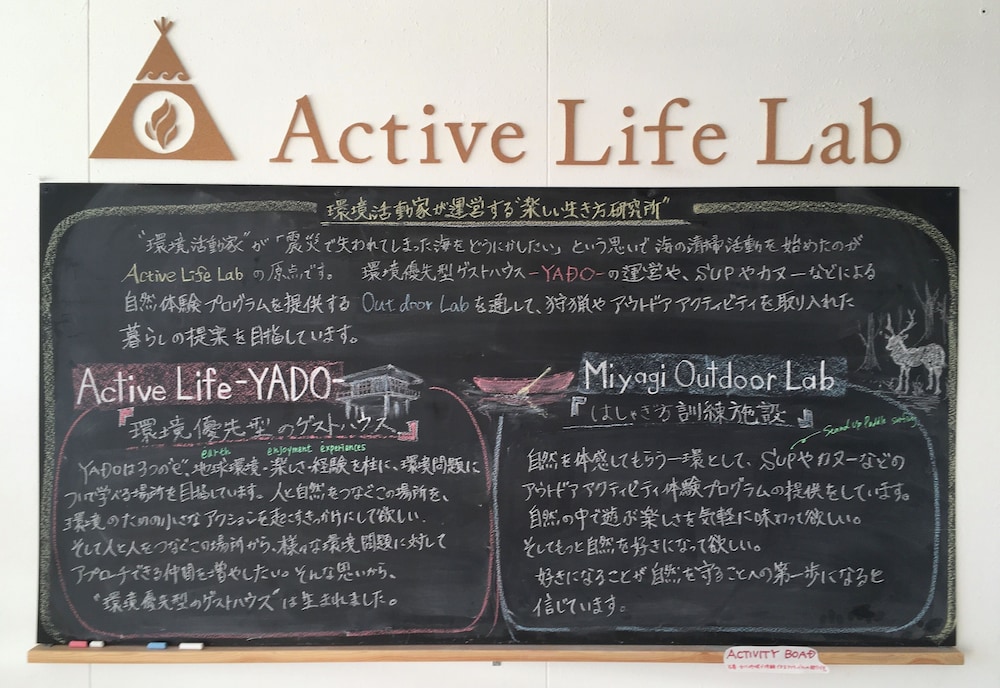 Active Life Lab
環境活動家が運営する"楽しい生き方研究所"
"環境活動家"が「震災で失われてしまった海をどうにかしたい」という思いで海の清掃活動を始めたのが
Active Life Labの原点です。 環境優先型ゲストハウス-YADO-の運営や、SUPやカヌーなどによる
自然体験プログラムを提供するOutdoor Labを通して、狩猟やアウトドアアクティビティを取り入れた
暮らしの提案を目指しています。
Active Life-YADO-
『環境優先型のゲストハウス』
earth enjoyment experiences
YADOは3つの"e"、地球環境・楽しさ・経験を柱に、環境問題に
ついて学べる場所を目指しています。人と自然をつなぐこの場所を、
環境のための小さなアクションを起こすきっかけにして欲しい.
そして人と人をつなぐこの場所から、様々な環境問題に対して
アプローチできる仲間を増やしたい。そんな思いから、
"環境優先型のゲストハウス"は生まれました。
Miyagi Outdoor Lab
『はしゃぎ方訓練施設』
Stand Up Paddle
自然を体感してもらう一環として、SUPやカヌーなどの
アウトドアアクティビティ体験プログラムの提供をしています。
自然の中で遊ぶ楽しさを気軽に味わって欲しい。
そしてもっと自然を好きになって欲しい。
好きになることが自然を守ることへの第一歩になると
信じています。
ACTIVITY BOAD